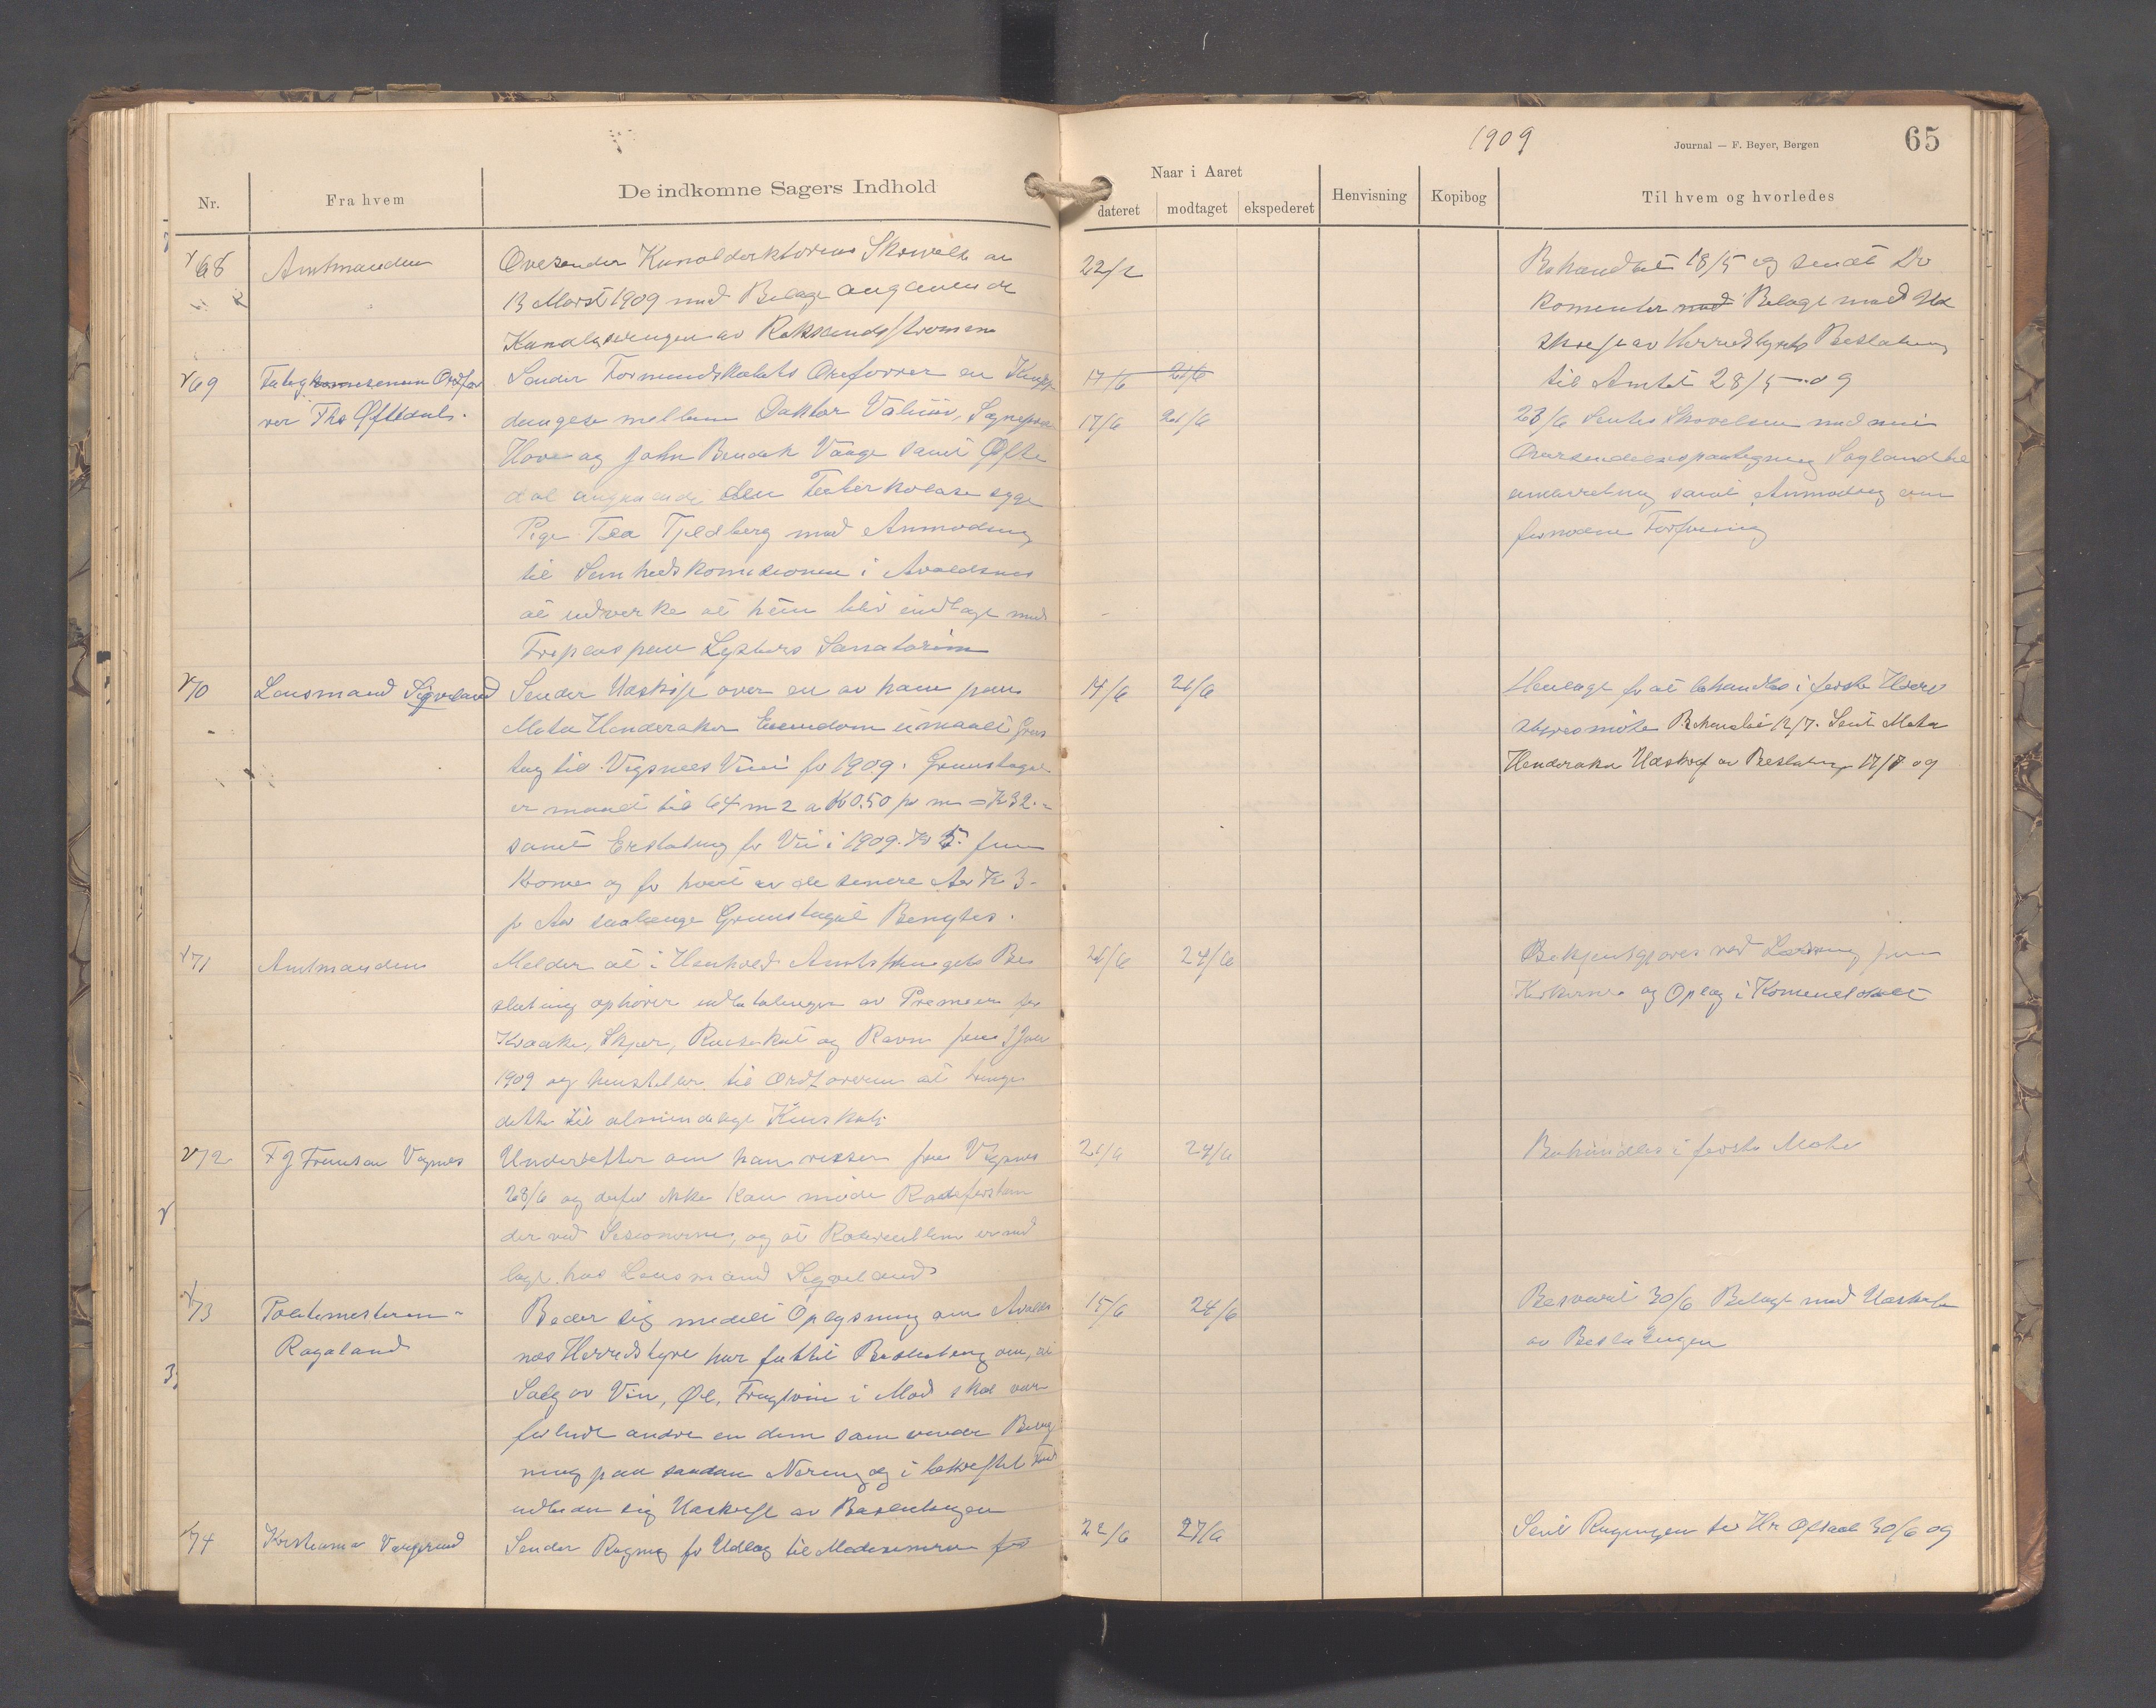 1909
Journal — F. Beyer, Bergen
65
Nr.
Fra hvem
De indkomne Sagers Indhold
Naar i Aaret
dateret
modtaget
ekspederet
Henvisning
Kopibog
Til hvem og hvorledes
68
Amtmanden
Oversender Kanaldirktørens Skrivelse av
13 Marst 1909 med Bilage angaaende
Kanaliseringen av
22/2
Behandlet 18/5 og sendt Do
komenter med Belage med Ud
skrift av Herredstyrets Beslutning
til Amtet 28/5 - 09
69
Ordfø
rer Ths Øftedal.
Sender Formandskabets Ordfører en
mellem Doktor
Hove og John Bendik Vaage samt Øfte
dal angaaende den Teuberkolose syge
Pige Tea Tjeldberg med Anmodning
til Sunhedskomisionen i Avaldsnes
at udverke at hun blir indlagt med
Friplas paa Lysters Sanatorium
17/6 21/6
17/6 21/6
23/6 Sentes Skrivelsen med min
Oversendelsespaategning
samt Anmodning om
fornøden Forføining
70
Lensmand Sigveland
Sender Udskrift over en av ham paa
Meta Henderaker Eiendom
tag til Vigsnes Vei for 1909. Grustaget
er maalt til 64 m 2 a Kr 0.50 pr m = Kr 32.-
samt Erstatning for Vei i 1909. Kr 5. fem
Kroner og for hvert av de senere Aar Kr 3-
pr Aar saalenge Grustaget Benyttes.
14/6
21/6
Henlagt for at behandles i første Herred
styresmøte Behandlet 12/7. Sent Meta
Henderaker Udskrift av Beslutning 17/7 09
71
Amtmanden
Melder at i Henhold Amtstingets Bes
lutning ophører udbetalingen av Premier for
Kraake, Skjær, og Ravn fra 1 Juli
1909 og henstiller til Ordføreren at bringe
dette til almindelige Kunskab
24/6
Bekjentgjøres ved Læsning fra
Kirkerne og Opslag i Komunelokalet
72
F J Fransen Vignes
Underetter om han reiser fra Vigsnes
28/6 og derfor ikke kan møde
der ved Sesionerne, og at er ned
lagt hos Lensmand Sigveland
21/6
24/6
Behandles i første Møte
73
Politimesteren
Rogaland
Beder sig medelt Oplysning om Avalds
nes Herredstyre har fattet Beslutning om, at
Salg av Vin, Øl, Frugtvin i Mød skal være
forbudt andre en dem som
paa saadan Nering og i bekreftet
udbeder sig Udskrift av Beslutningen
15/6
24/6
Besvaret 30/6 Bilagt med Udskrift
av Beslutningen
74
Sender Regning for Udlæg til Medesinerne for
22/6
27/6
Sent Regningen til Hr Oftdal 30/6 09